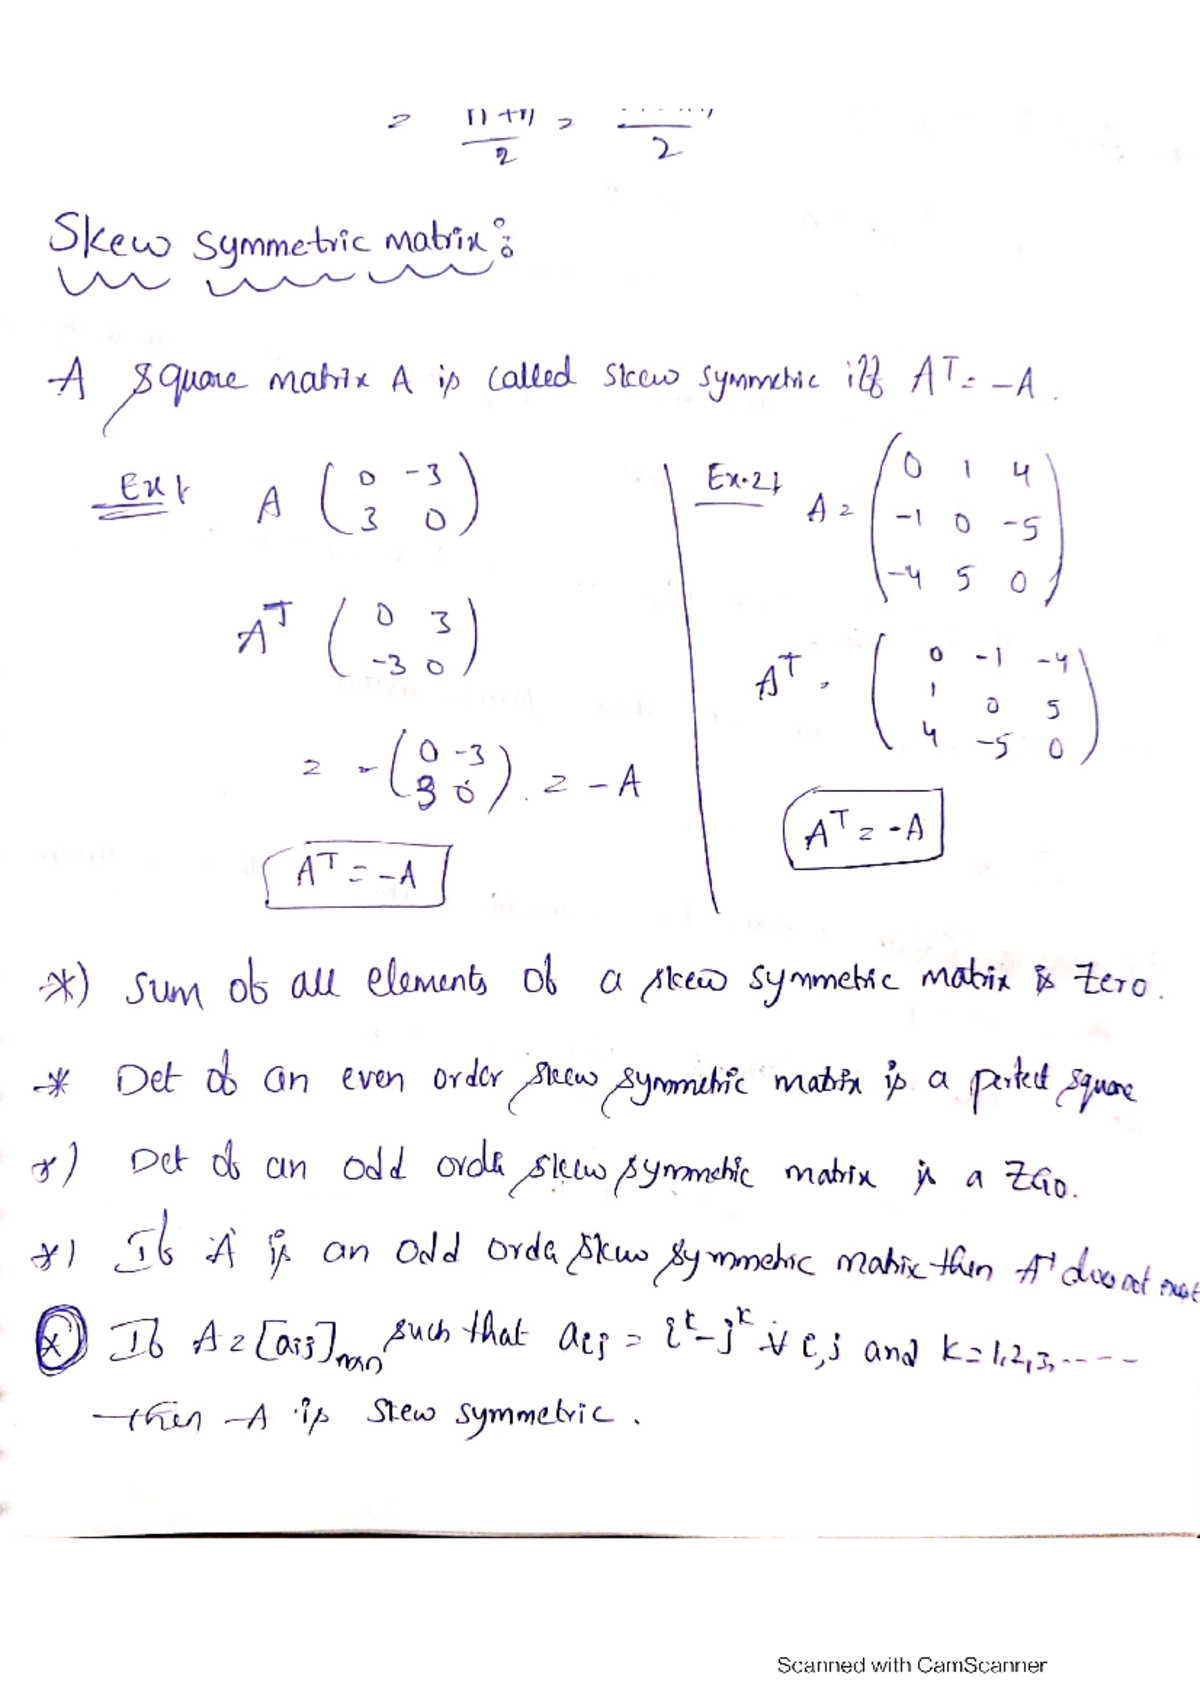 = n+n/2 = /2
Skew symmetric matrix:
A square matrix A is called skew symmetric iff A^T = -A.
Ex 1 A ( 0 -3
3 0 )
A^T ( 0 3
-3 0 )
= -( 0 -3
3 0 ). = -A
A^T = -A
Ex.2) A = ( 0 1 4
-1 0 -5
-4 5 0 )
A^T = ( 0 -1 -4
1 0 5
4 -5 0 )
A^T = -A
*) Sum of all elements of a skew symmetric matrix is zero.
* Det of an even order skew symmetric matrix is a perfect square
*) Det of an odd order skew symmetric matrix is a zero.
*) If A is an odd order skew symmetric matrix then A^-1 does not exist
* If A = [aij]nxn such that aij = i^k - j^k ∀ i,j and k = 1,2,3,-----
then A is skew symmetric.
Scanned with CamScanner